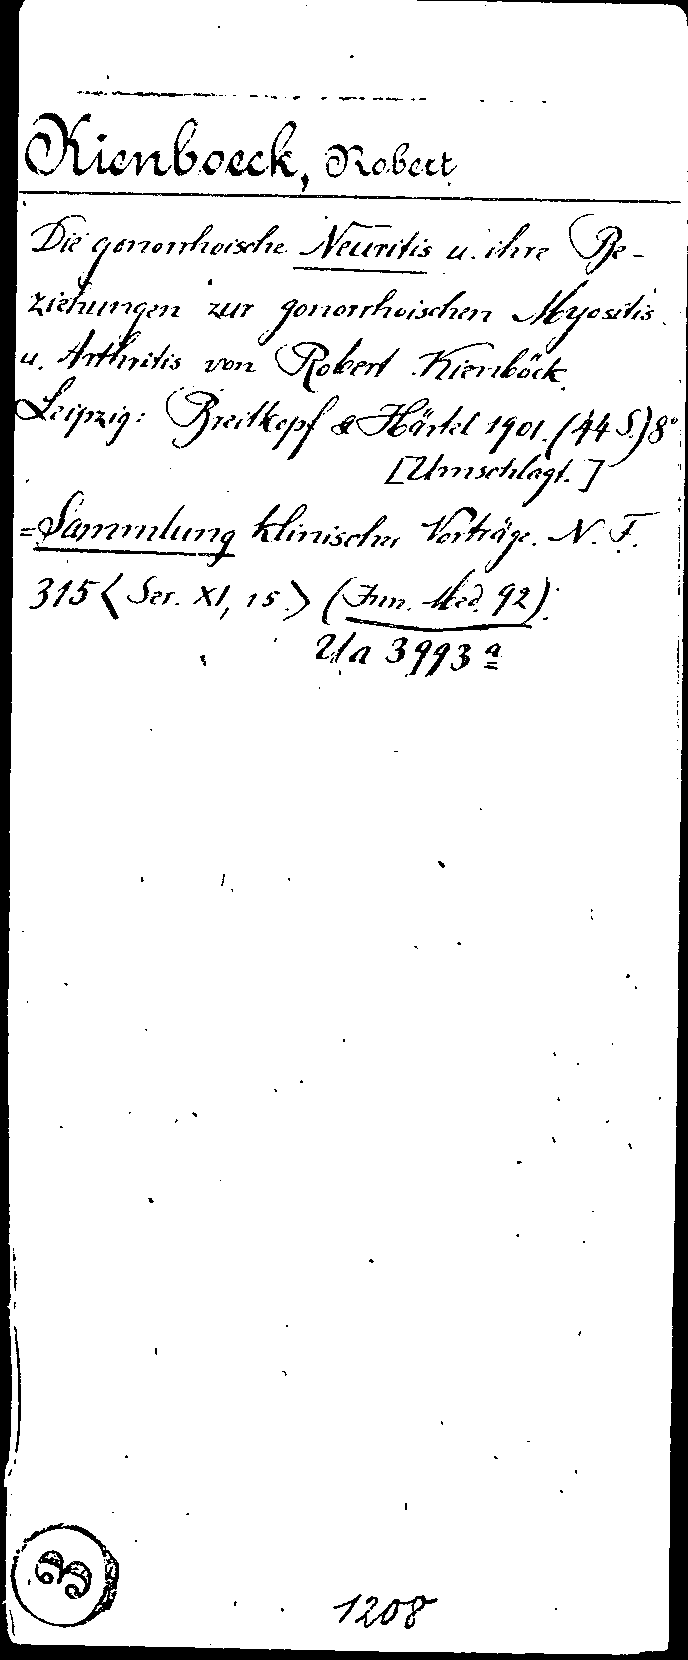 Kienboeck, Robert
Die gonorrhoische Neuritis u. ihre Be-
ziehungen zur gonorrhoischen Myositis
u. Arthritis von Robert Kienböck.
Leipzig: Breitkopf & Härtel 1901. (44 S.) 8°
[Umschlagt.]
= Sammlung klinischer Vorträge. N. F.
315 < Ser. XI, 15. > (Inn. Med. 92).
Ua 3993 a
1208